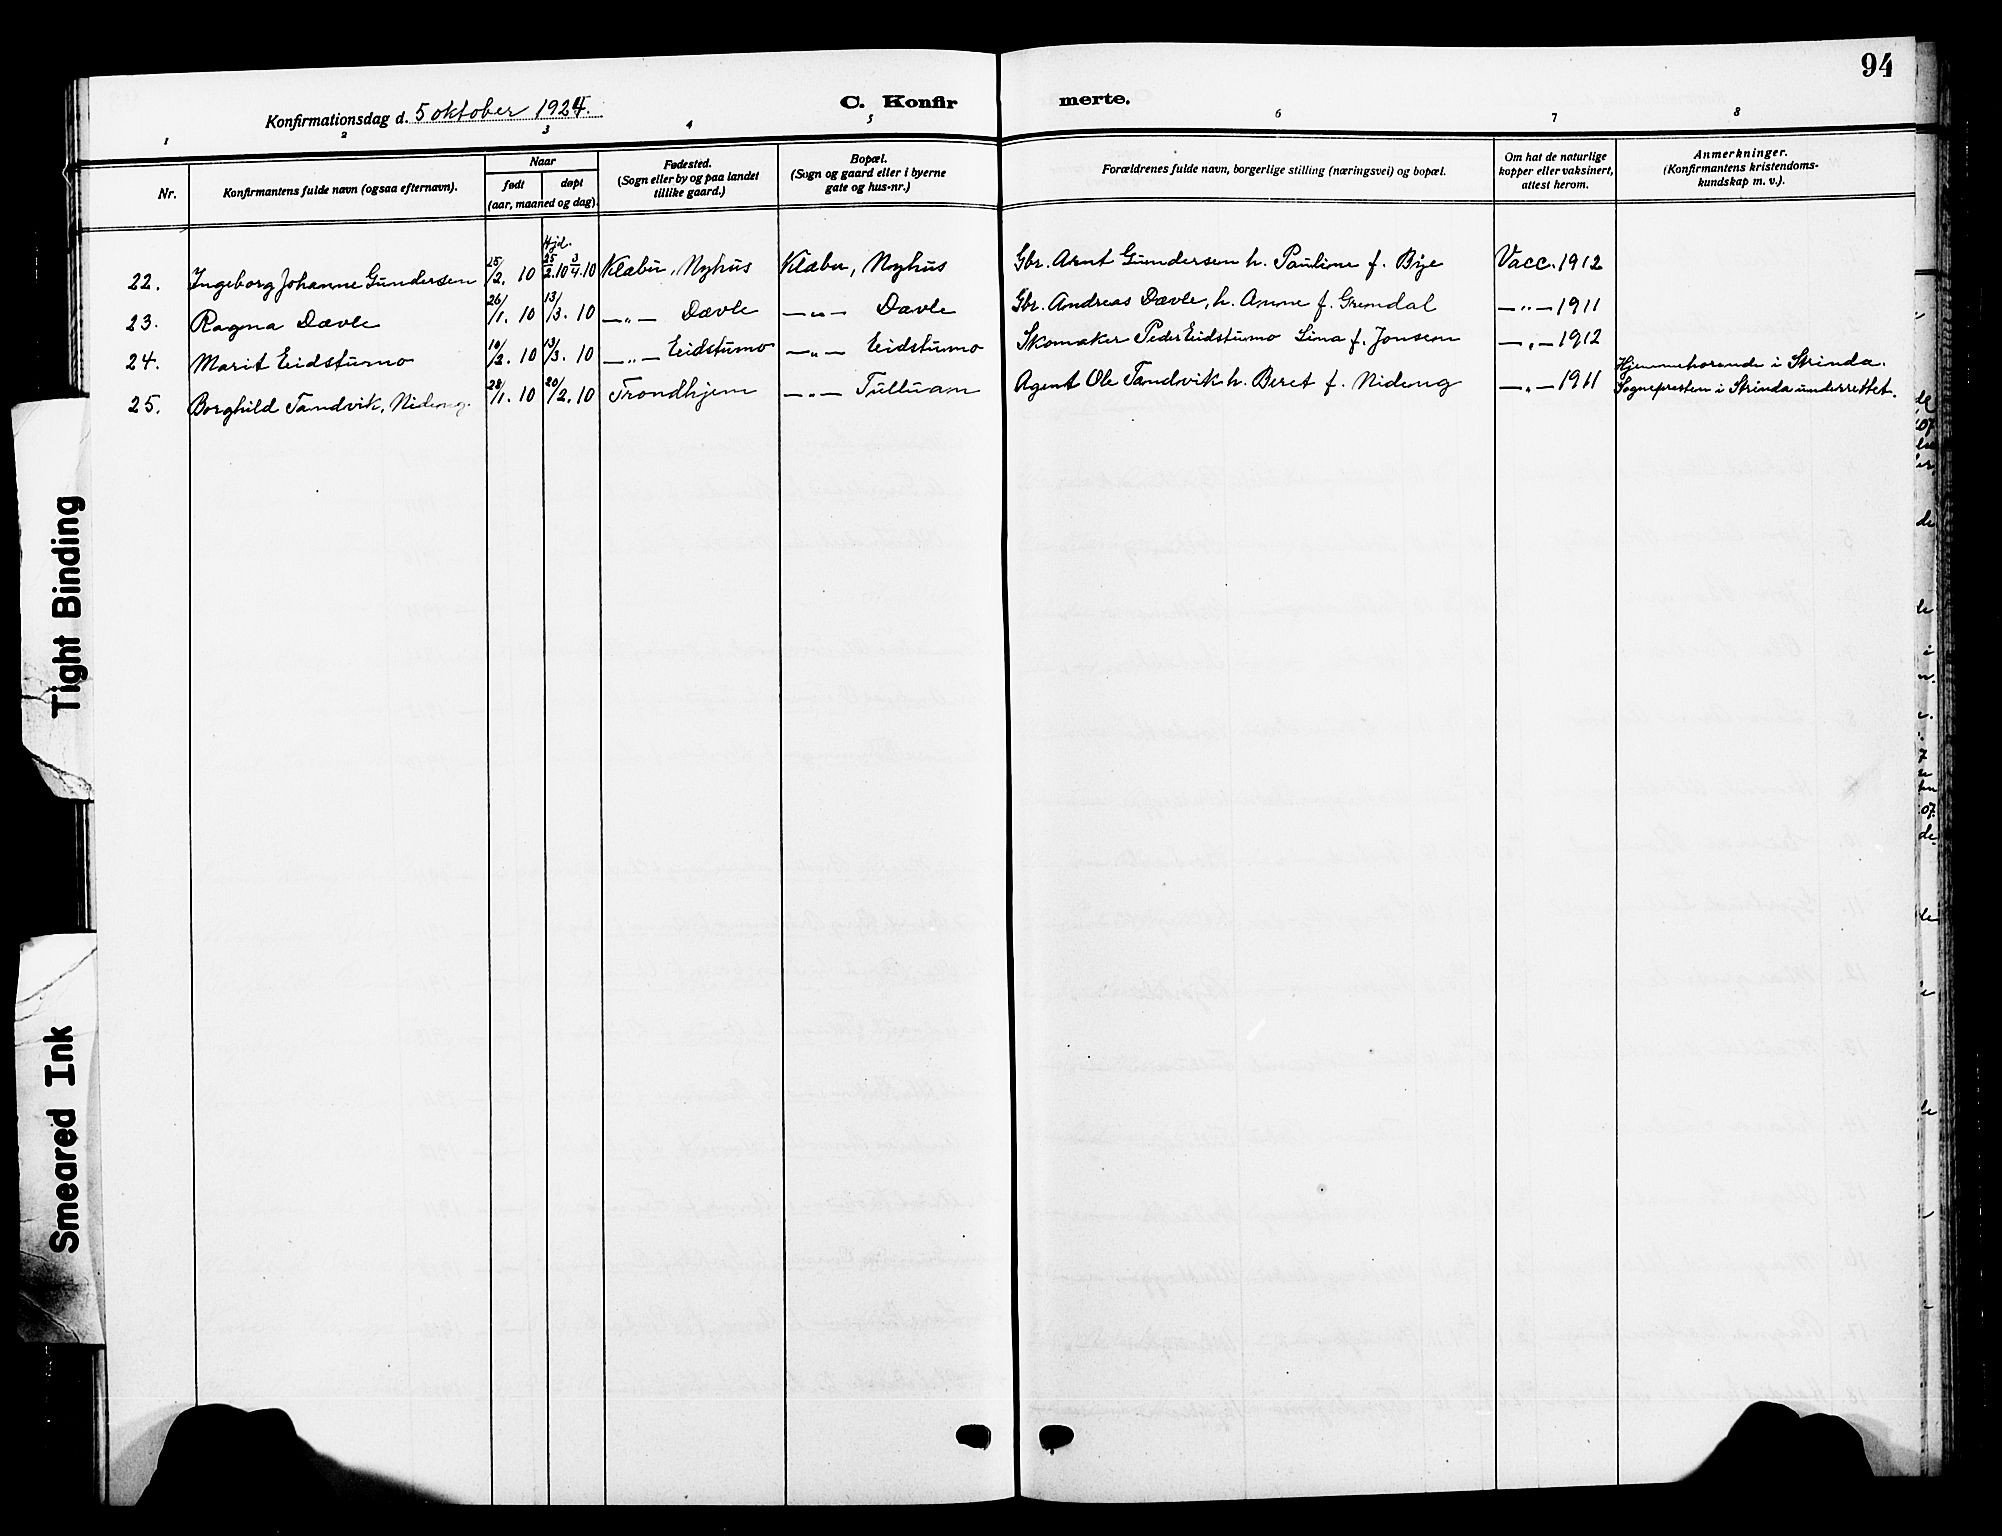 94
Konfirmationsdag d. 5 oktober 1924.
C. Konfir
merte.
1 2 3 4 5 6 7 8
Nr.
Konfirmantens fulde navn (ogsaa efternavn).
Naar
født
døpt
(aar, maaned og dag).
Fødested.
(Sogn eller by og paa landet
tillike gaard.)
Bopæl.
(Sogn og gaard eller i byerne
gate og hus-nr.)
Forældrenes fulde navn, borgerlige stilling (næringsvei) og bopæl.
Om hat de naturlige
kopper eller vaksinert,
attest herom.
Anmerkninger.
(Konfirmantens kristendoms-
kundskap m. v.).
Hjd.
22. Ingeborg Johanne Gundersen 15/2. 10 25/2.10 3/4.10 Klæbu, Nyhus Klæbu, Nyhus Gbr. Arnt Gundersen h. Pauline f. Bye Vacc. 1912
23. Ragna Dævle 26/1. 10 13/3. 10 —„— Dævle —„— Dævle Gbr. Andreas Dævle, h. Anne f. Grendal —„— 1911
24. Marit Eidstumo 10/2. 10 13/3. 10 —„— Eidstumo —„— Eidstumo Skomaker Peder Eidstumo Lina f. Jonsen —„— 1912
25. Borghild Tandvik, Nideng. 28/1. 10 20/2. 10 Trondhjem —„— Tulluan Agent Ole Tandvik h. Beret f. Nideng —„— 1911 Hjemmehørende i Strinda.
Sognepresten i Strinda underrettet.
Tight Binding
Smeared Ink